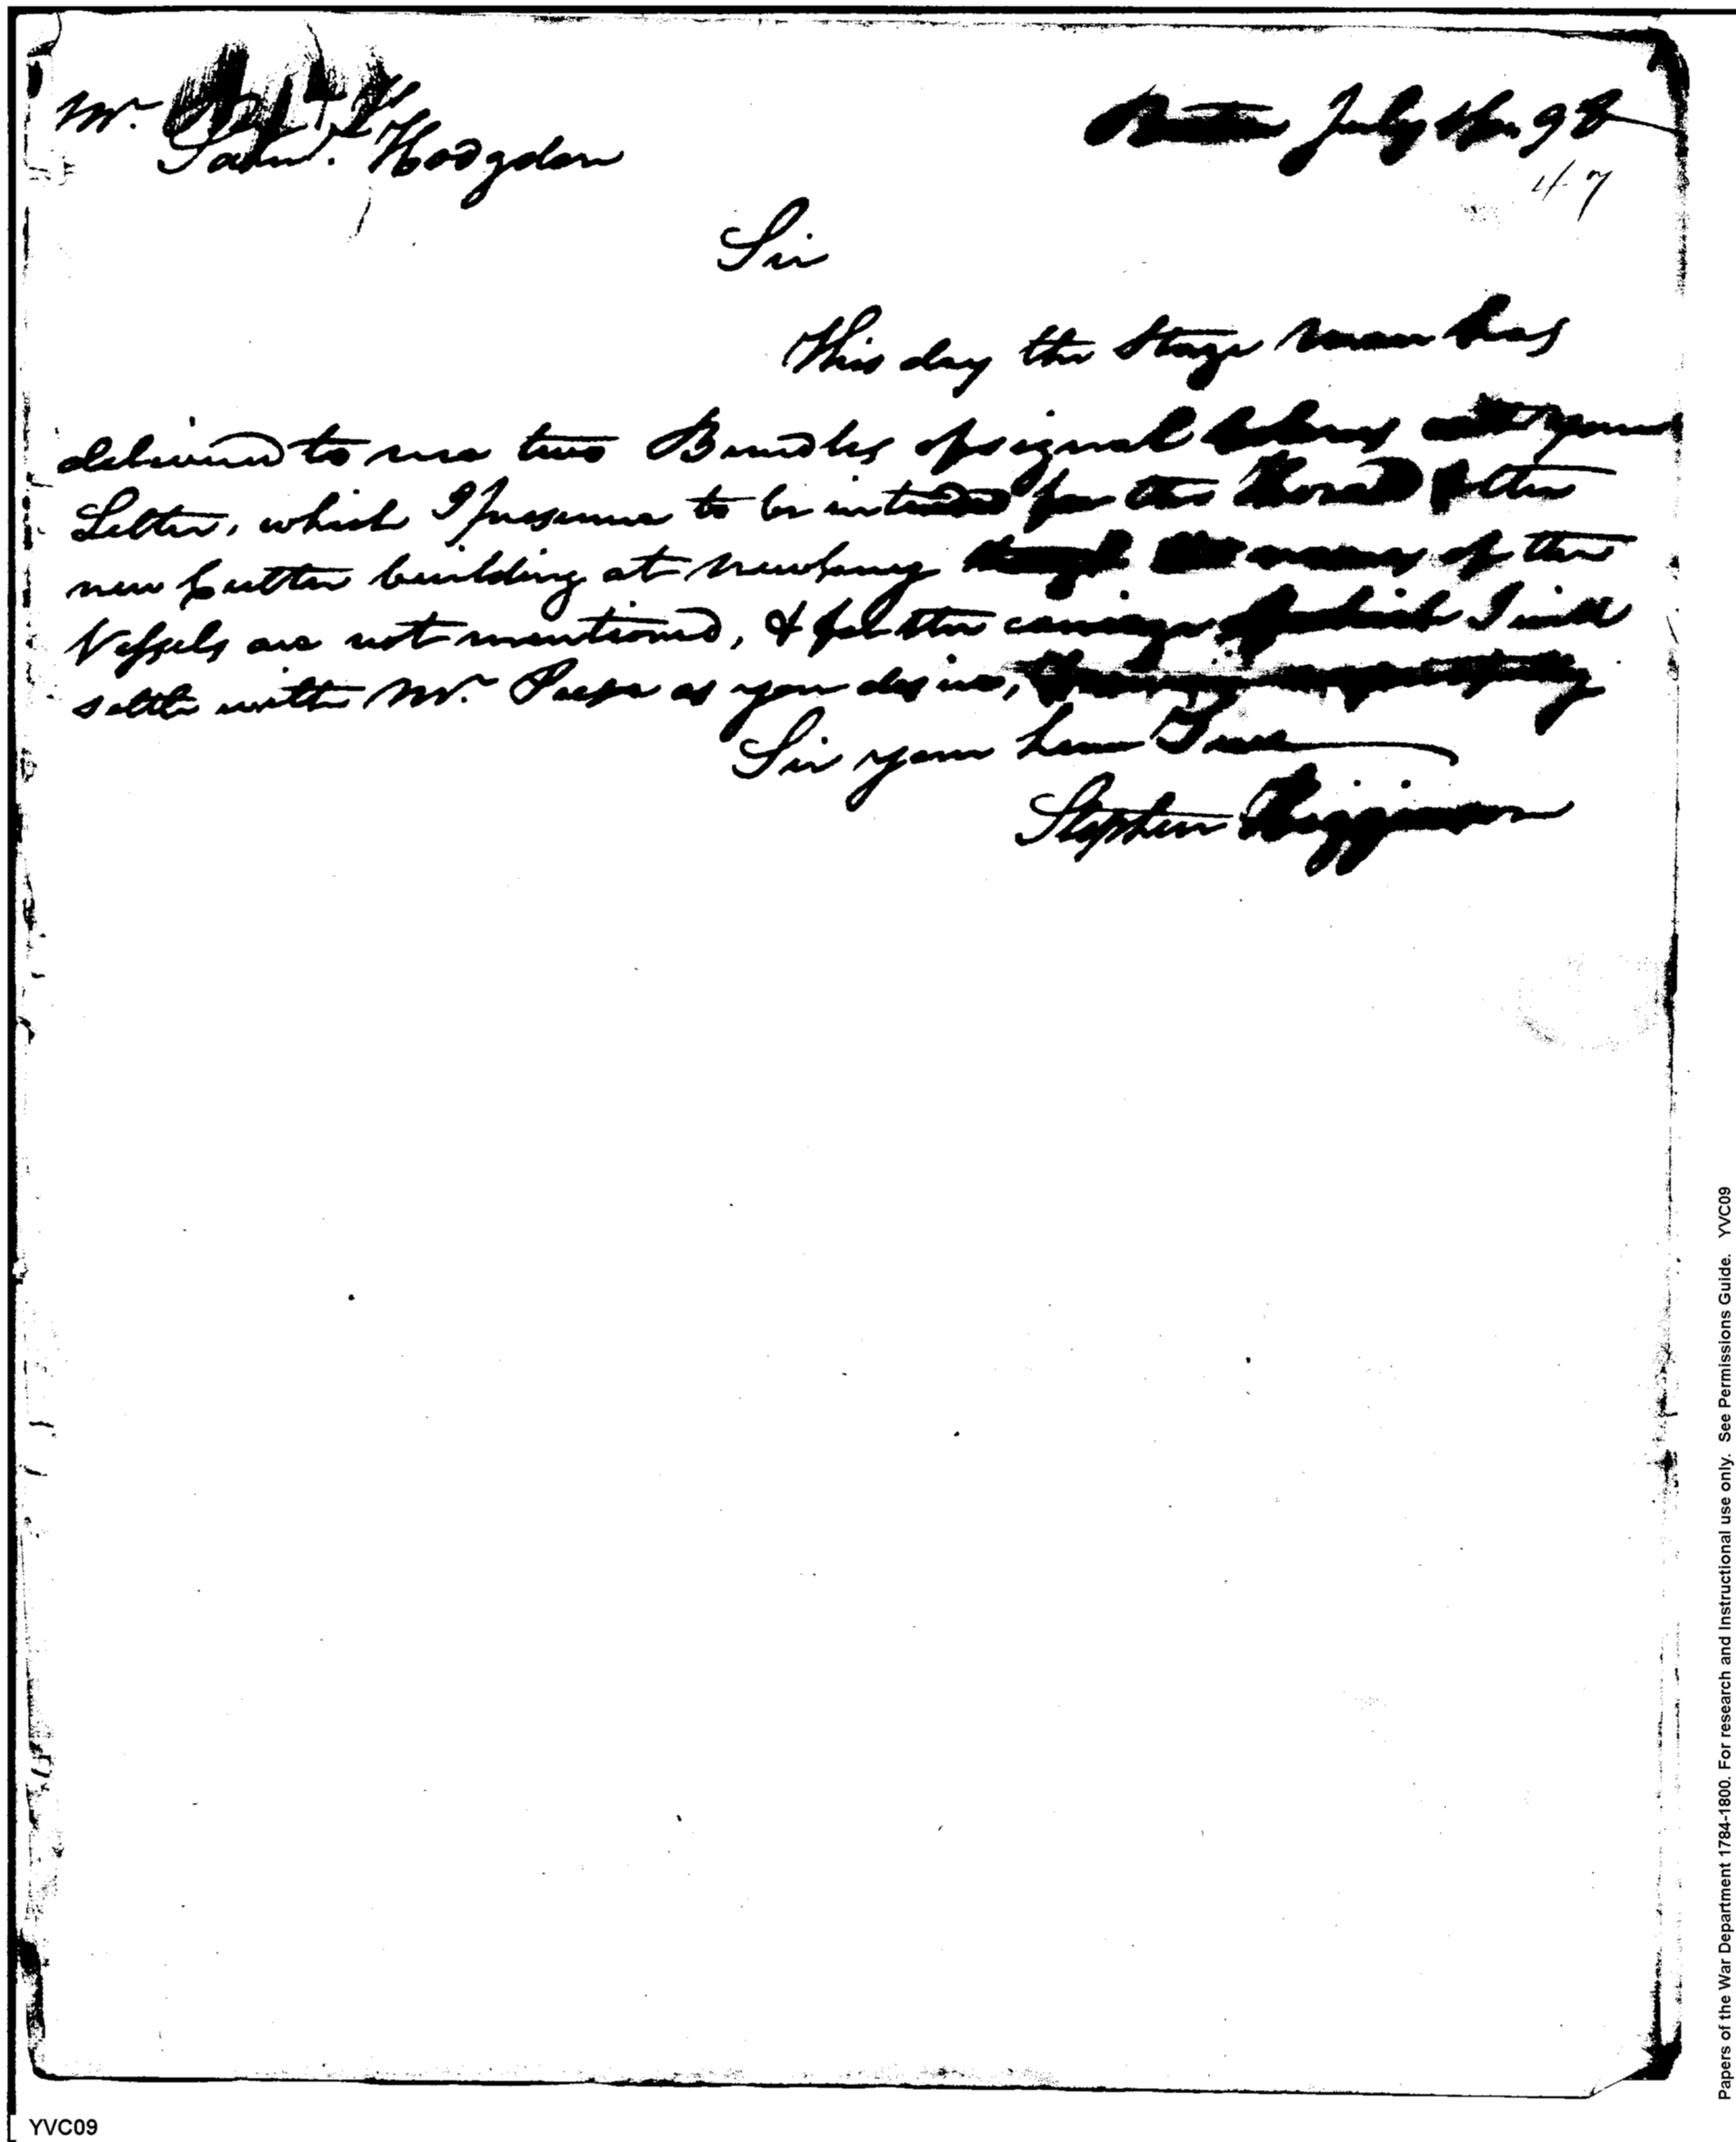 Mr. Saml. Hodgdon
Boston July 98
47
Sir
This day the Stage man has
delivered to me two Bundles of signal Colours your
Letter, which I presume to be intended for the Herald & the
new Cutter building at Newbury though the names of the
Vessels are not mentioned, & for the carriage of which I will
settle with Mr. as you desire,
Sir your hum
Stephen Higginson
Papers of the War Department 1784-1800. For research and Instructional use only. See Permissions Guide. YVC09
YVC09